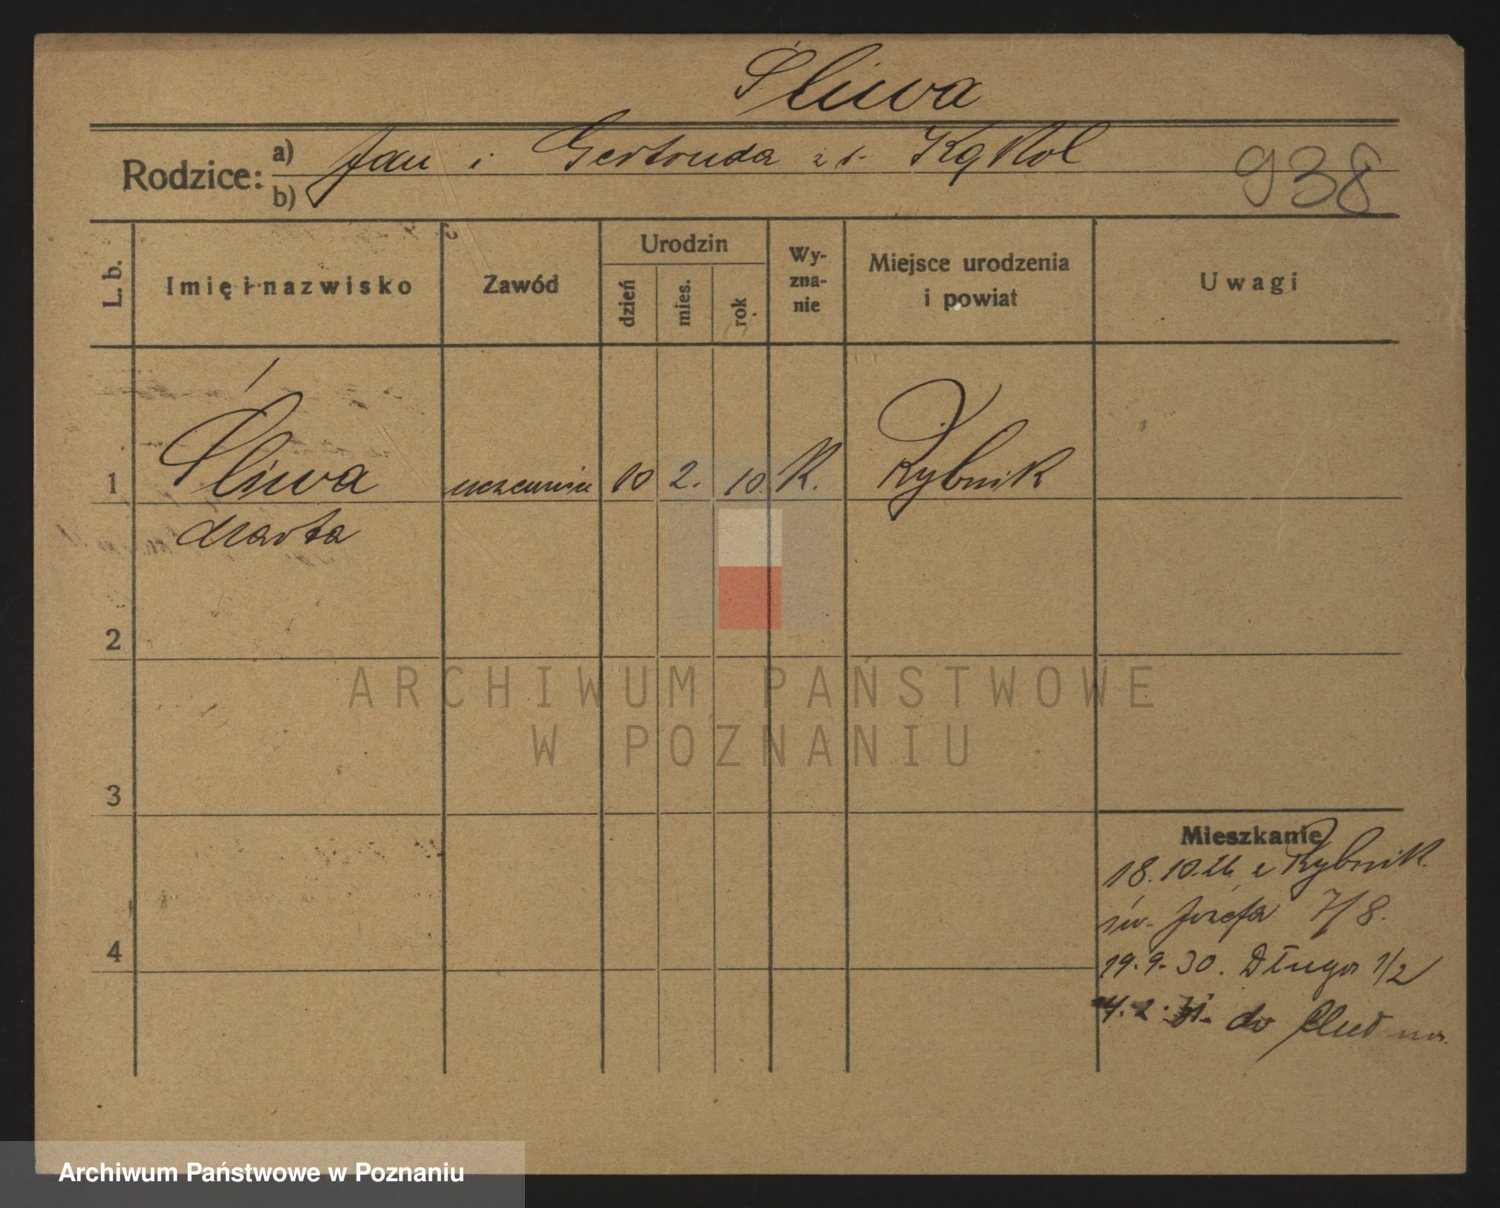 Śliwa
Rodzice: a) b) Jan i Gertruda z d. Kąkol
938
L. b.
Imię i nazwisko
Zawód
Urodzin
dzień
mies.
rok
Wy-
zna-
nie
Miejsce urodzenia
i powiat
Uwagi
1 Śliwa uczennica 10 2. 10 K. Rybnik
Marta
2
ARCHIWUM PAŃSTWOWE
W POZNANIU
3
Mieszkanie
18.10.26 z Rybnik
św. Józefa 7/8.
4
19.9.30. Długa 1/2
4.2.31. do
Archiwum Państwowe w Poznaniu